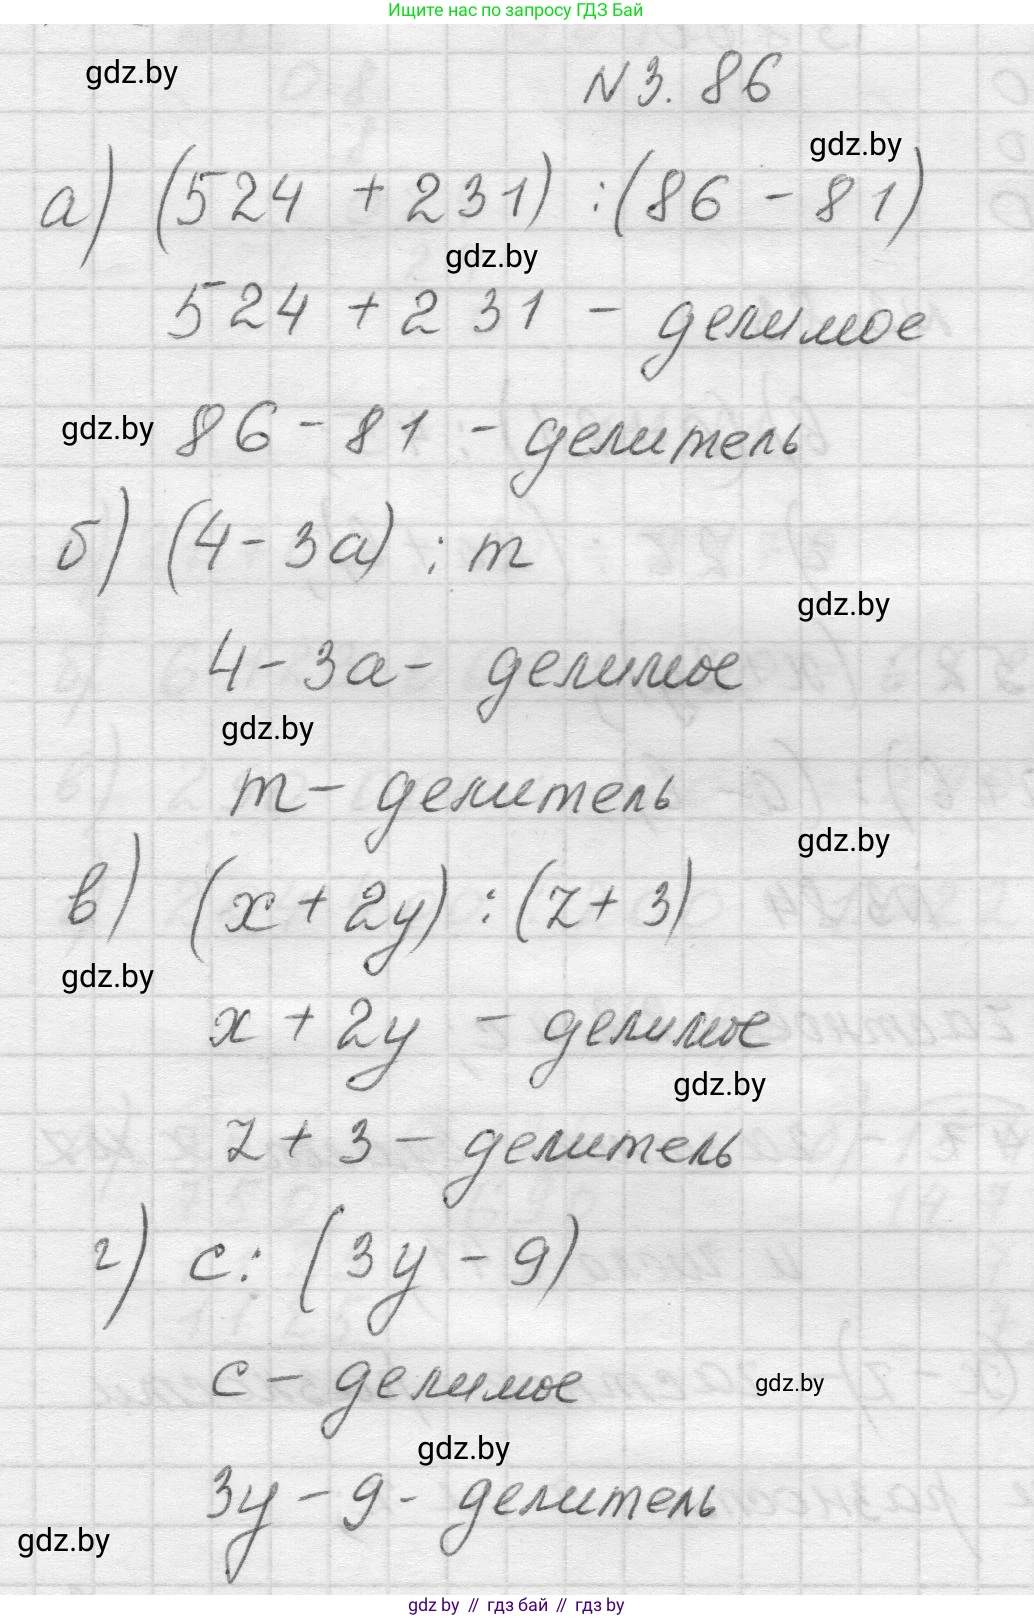 Ищите нас по запросу ГДЗ Бай
gdz.by
N 3. 86
gdz.by
а) (524 + 231) : (86 - 81)
gdz.by
524 + 231 - делимое
gdz.by
86 - 81 - делитель
б) (4 - 3а) : m
gdz.by
4 - 3а - делимое
gdz.by
m - делитель
gdz.by
в) (x + 2y) : (z + 3)
gdz.by
x + 2y - делимое
gdz.by
z + 3 - делитель
г) c : (3y - 9)
c - делимое
gdz.by
gdz.by
3y - 9 - делитель
gdz.by
gdz by // гдз бай // гдз by